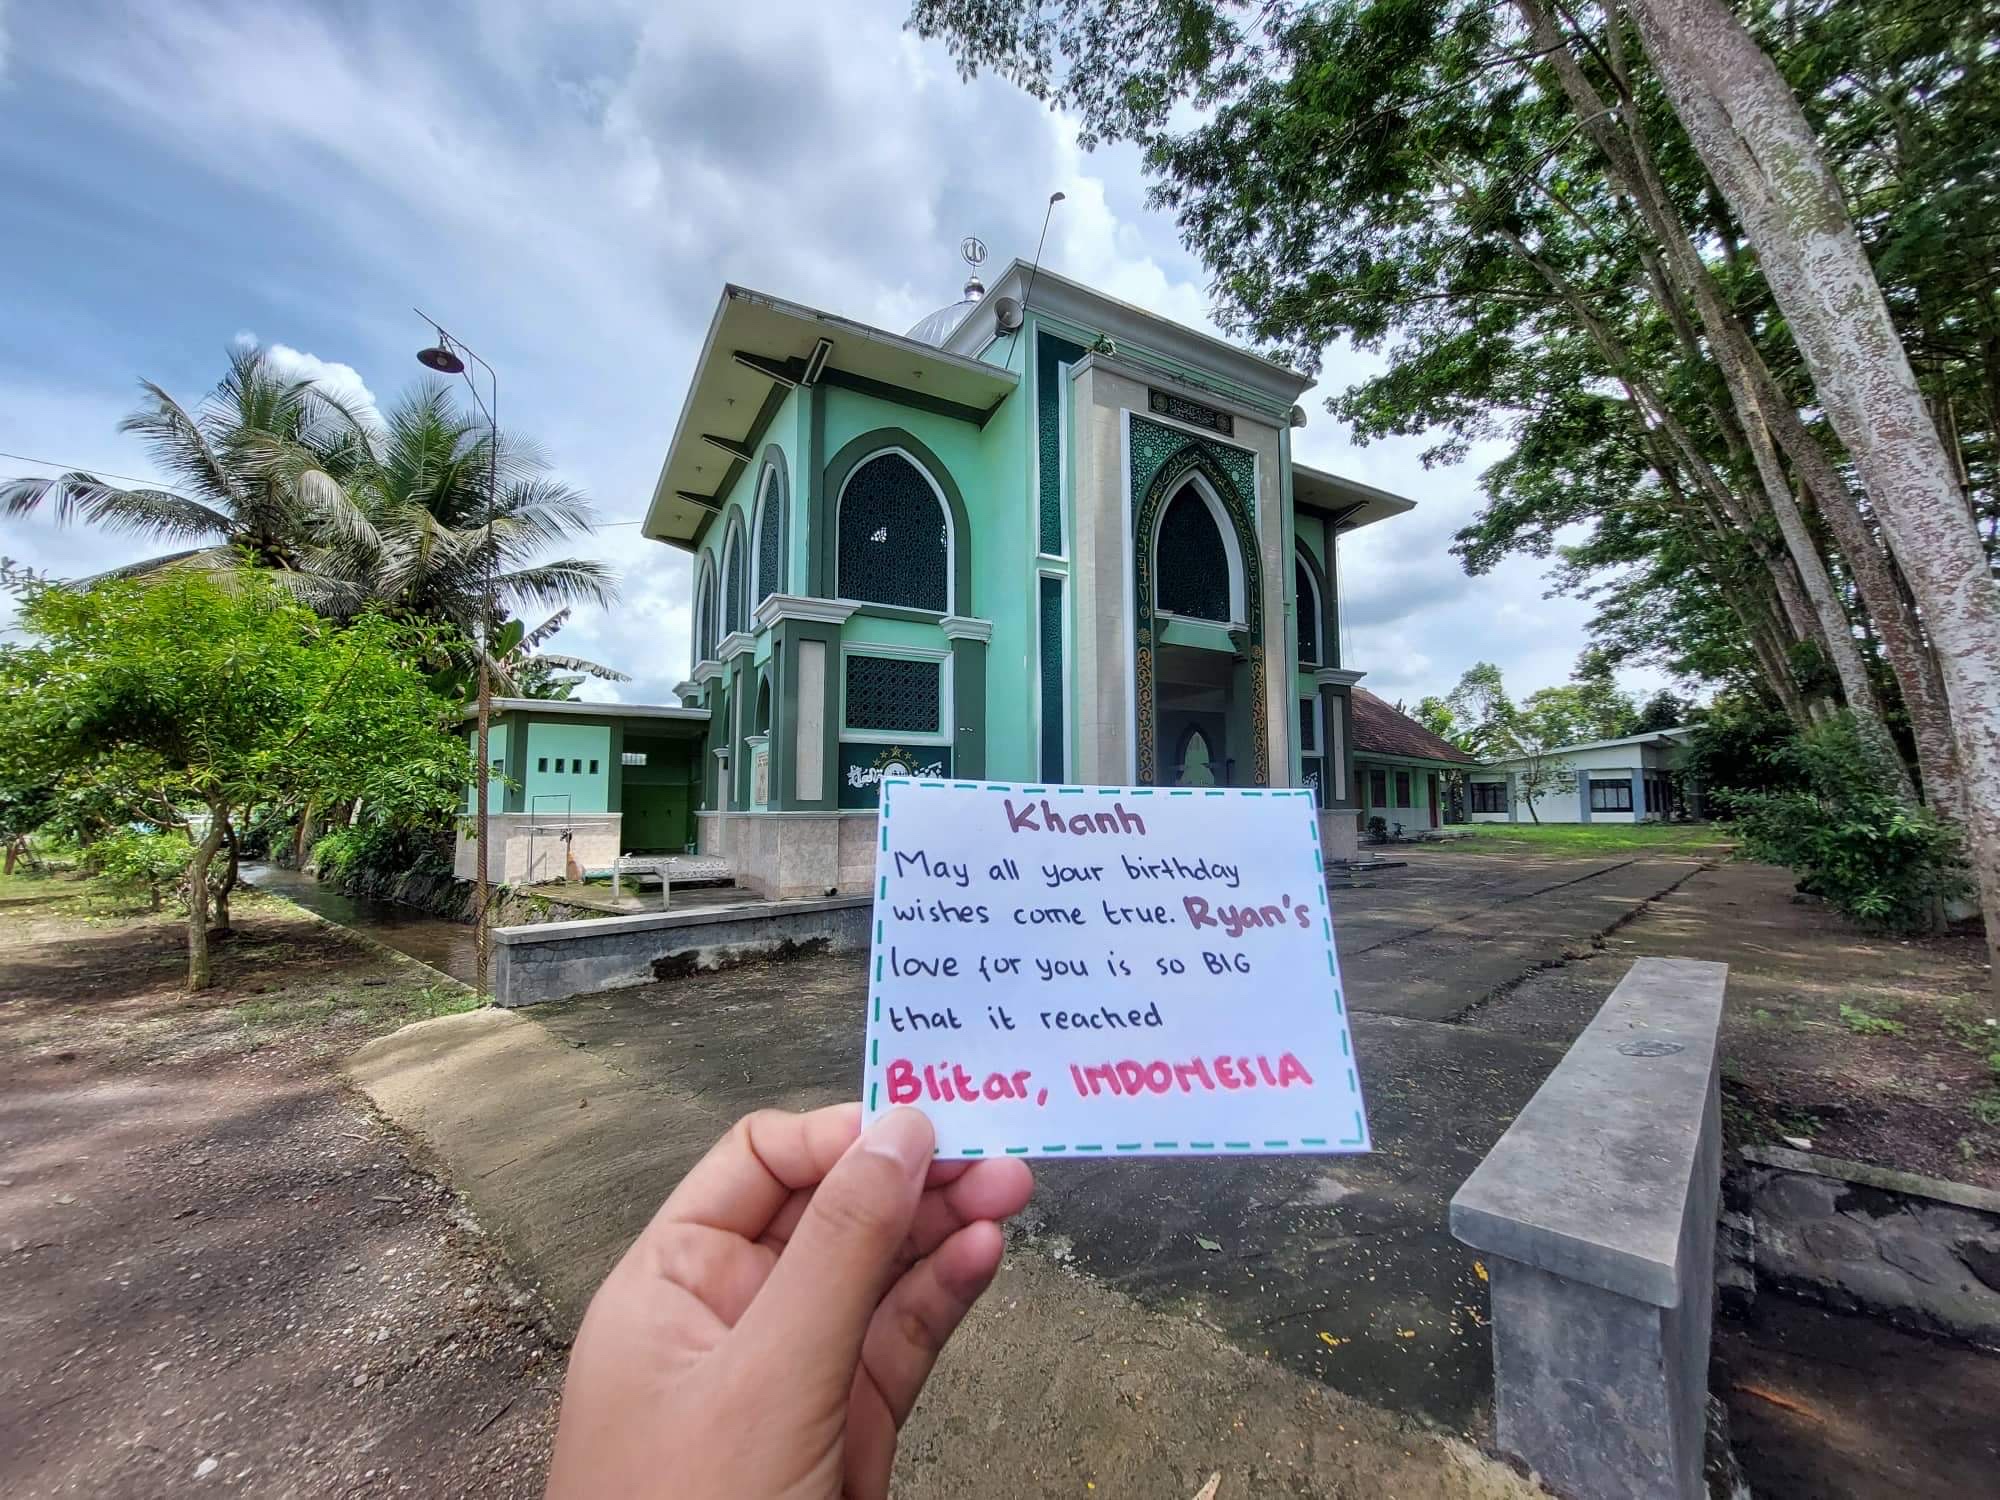 Khanh
May all your birthday
wishes come true. Ryan's
love for you is so BIG
that it reached
Blitar, INDONESIA